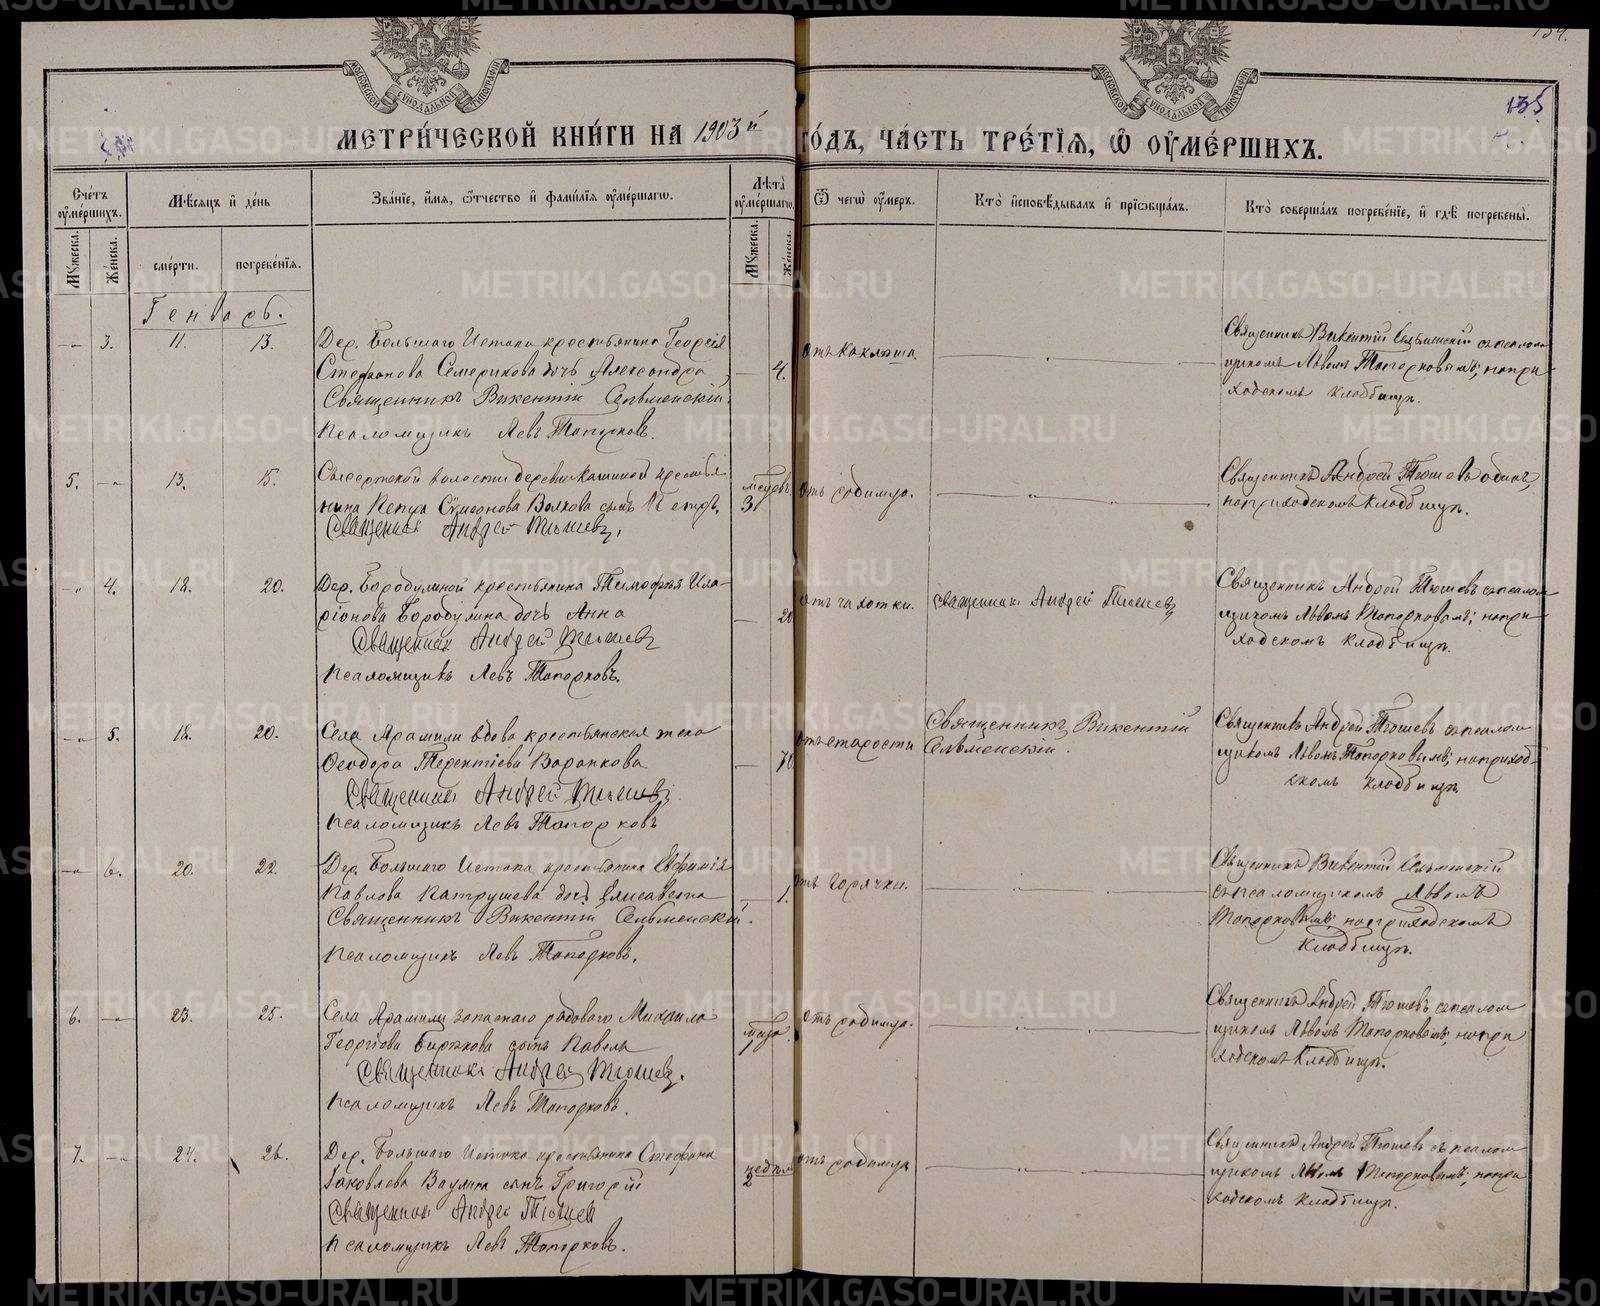 134.
135
МОСКОВСКОЙ СѴНОДАЛЬНОЙ ТИПОГРАФІИ
МОСКОВСКОЙ СѴНОДАЛЬНОЙ ТИПОГРАФІИ
МЕТРИ́ЧЕСКОЙ КНИ́ГИ НА 1903й ГО́ДЪ, ЧА́СТЬ ТРЕ́ТІѦ, Ѡ҆ ОУ҆МЕ́РШИХЪ.
Сче́тъ оу҆ме́ршихъ.
Мѣ́сяцъ и҆ де́нь
Зва́ніе, и҆́мя, ѻ҆́тчество и҆ фами́лія оу҆ме́ршагѡ.
Лѣ́та оу҆ме́ршагѡ.
Ѿ чегѡ̀ оу҆́меръ.
Кто̀ и҆сповѣ́дывалъ и҆ прїѡбща́лъ.
Кто̀ соверша́лъ погребе́ніе, и҆ гдѣ̀ погребены̀.
Мꙋ́жеска. Же́нска. сме́рти. погребе́нія. Мꙋ́жеска. Же́нска.
Генварь.
3. 11. 13. Дер. Большаго Истока крестьянина Георгія
Стефанова Семерикова дочь Александра 4.
Священникъ Викентій Сельменскій.
Псаломщикъ Левъ Топорковъ.
отъ коклюша.
Священникъ Викентій Сельменскій съ псалом
щикомъ Львомъ Топорковымъ; на при
ходскомъ кладбищѣ.
5. 13. 15. Сысертской волости деревни Кашиной крестья
нина Петра Сѵмеонова Волкова сынъ Петръ. мѣсяцъ 3
Священник Андрей Тюшевъ.
отъ родимца.
Священникъ Андрей Тюшевъ один,
на приходскомъ кладбищѣ.
4. 18. 20. Дер. Бородулиной крестьянина Тимофея Ила-
ріонова Бородулина дочь Анна 20
Священник Андрей Тюшев
Псаломщикъ Левъ Топорковъ.
отъ чахотки.
Священник Андрей Тюшев
Священникъ Андрей Тюшевъ съ псалом
щикомъ Львомъ Топорковымъ; на при
ходскомъ кладбищѣ.
5. 18. 20. Села Арамили вдова, крестьянская жена
Ѳеодора Терентіева 70
Священник Андрей Тюшевъ
Псаломщикъ Левъ Топорковъ
отъ старости
Священникъ Викентій
Сельменскій.
Священникъ Андрей Тюшевъ съ псалом
щикомъ Львомъ Топорковымъ; на приход-
скомъ кладбищѣ
6. 20. 22. Дер. Большаго Истока крестьянина Евфимія
Павлова Патрушева дочь Елисавета 1.
Священникъ Викентій Сельменскій.
Псаломщикъ Левъ Топорковъ.
отъ горячки.
Священникъ Викентій Сельменскій
съ псаломщикомъ Львомъ
Топорковымъ; на приходскомъ
кладбищѣ.
6. 23. 25. Села Арамили запаснаго рядоваго Михаила
Георгіева сынъ Павелъ 1
Священник Андрей Тюшев.
Псаломщикъ Левъ Топорковъ.
отъ родимца.
Священникъ Андрей Тюшевъ съ псалом
щикомъ Львомъ Топорковымъ; на при
ходскомъ кладбищѣ.
7. 24. 26. Дер. Большаго Истока крестьянина Стефана
Іаковлева Ваулина сынъ Григорій недѣли 2
Священник Андрей Тюшев
Псаломщикъ Левъ Топорковъ.
отъ родимца
Священникъ Андрей Тюшевъ съ псалом
щикомъ Львомъ Топорковымъ; на при
ходскомъ кладбищѣ.
METRIKI.GASO-URAL.RU